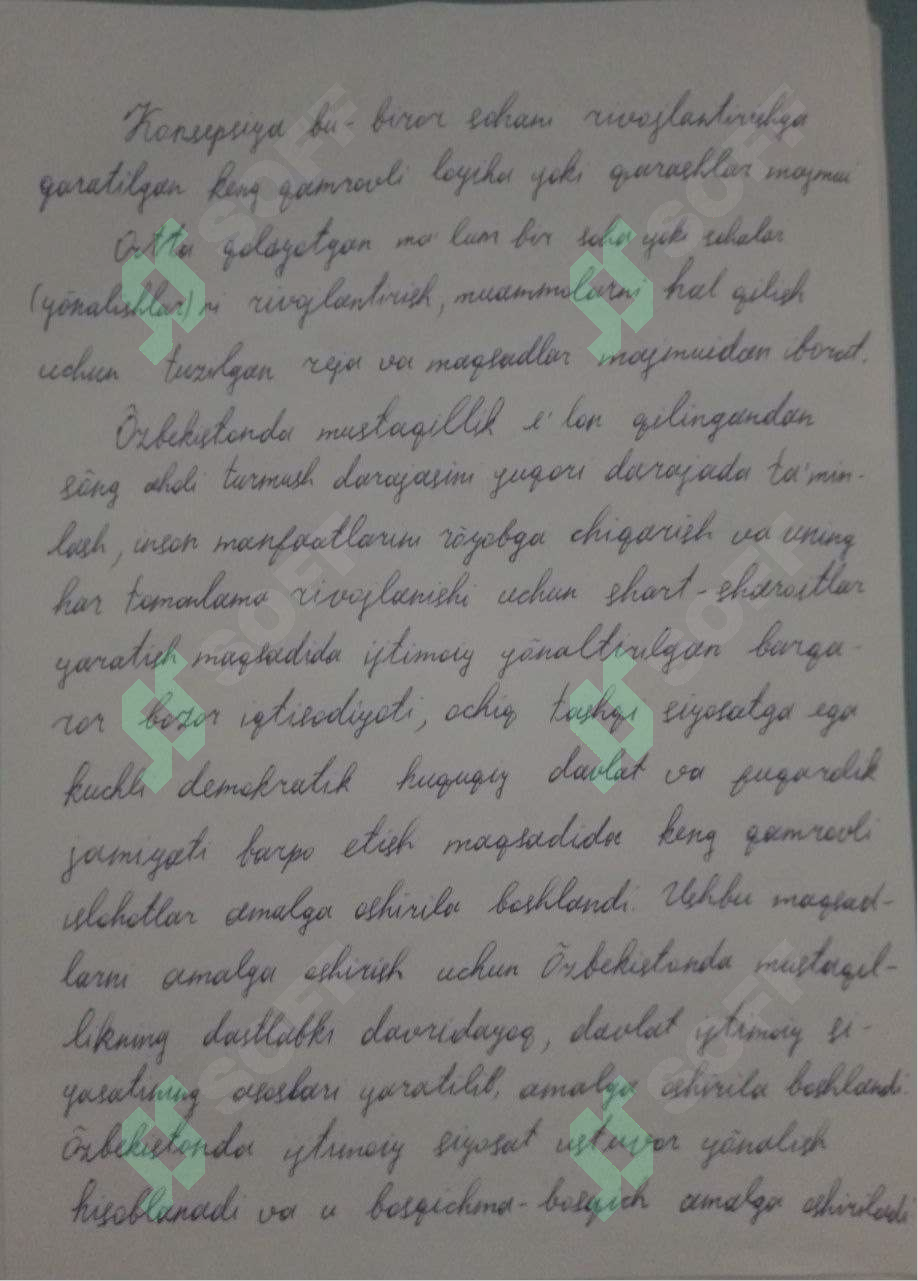 Konsepsiya bu - biror sohani rivojlantirishga
qaratilgan keng qamrovli loyiha yoki qarashlar majmui
Ortta qolayotgan ma'lum bir soha yoki sohalar
(yõnalishlar)ni rivojlantirish, muammolarni hal qilish
uchun tuzilgan reja va maqsadlar majmuidan iborat.
Õzbekistonda mustaqillik e'lon qilingandan
sõng aholi turmush darajasini yuqori darajada ta'min-
lash, inson manfaatlarini rõyobga chiqarish va uning
har tomonlama rivojlanishi uchun shart-sharoitlar
yaratish maqsadida ijtimoiy yõnaltirilgan barqa-
ror bozor iqtisodiyoti, ochiq tashqi siyosatga ega
kuchli demokratik huquqiy davlat va fuqarolik
jamiyati barpo etish maqsadida keng qamrovli
islohotlar amalga oshirila boshlandi. Ushbu maqsad-
larni amalga oshirish uchun Õzbekistonda mustaqil-
likning dastlabki davridayoq, davlat ijtimoiy si-
yosatining asoslari yaratilib, amalga oshirila boshlandi.
Õzbekistonda ijtimoiy siyosat ustuvor yõnalish
hisoblanadi va u bosqichma-bosqich amalga oshiriladi
SOFF
SOFF
SOFF
SOFF
SOFF
SOFF